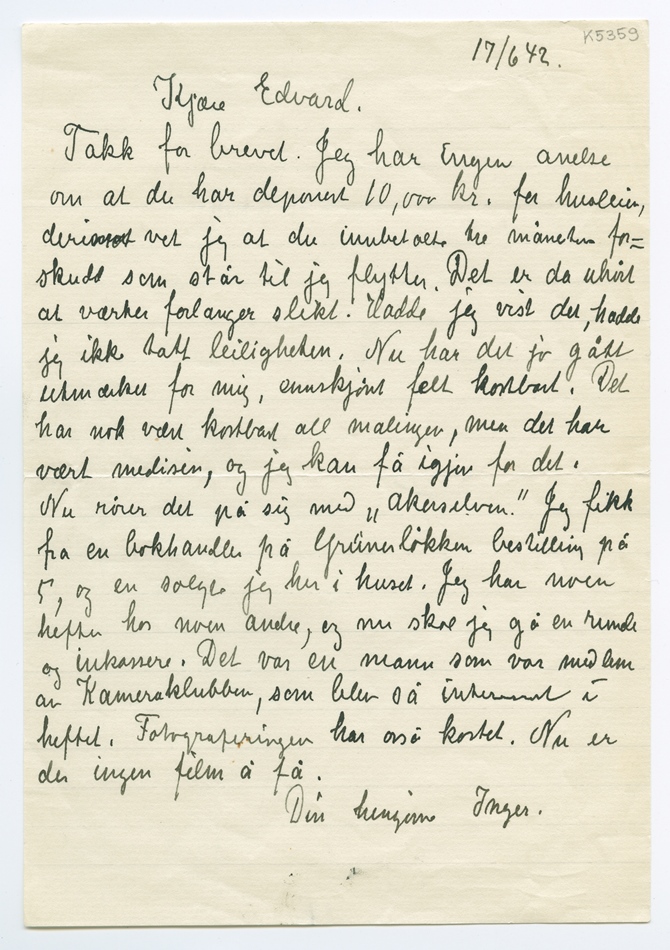 K5359
17/6 42.
Kjære Edvard.
Takk for brevet. Jeg har ingen anelse
om at du har deponert 10,000 kr. for husleien,
derimot vet jeg at du innbetalte tre måneder for=
skudd som står til jeg flytter. Det er da uhørt
at værter forlanger slikt. Hadde jeg vist det, hadde
jeg ikke tatt leiligheten. Nu har det jo gått
utmerket for mig, ennskjønt felt kostbart. Det
har nok vært kostbart all malingen, men det har
vært medisin, og jeg kan få igjen for det.
Nu rører det på sig med „Akerselven." Jeg fikk
fra en bokhandler på Grünerløkken bestilling på
5, og en solgte jeg her i huset. Jeg har noen
hefter hos noen andre, og nu skal jeg gå en runde
og inkassere. Det var en mann som var medlem
av Kameraklubben, som blev så interessert i
heftet. Fotograferingen har også kostet. Nu er
der ingen film å få.
Din hengivne Inger.